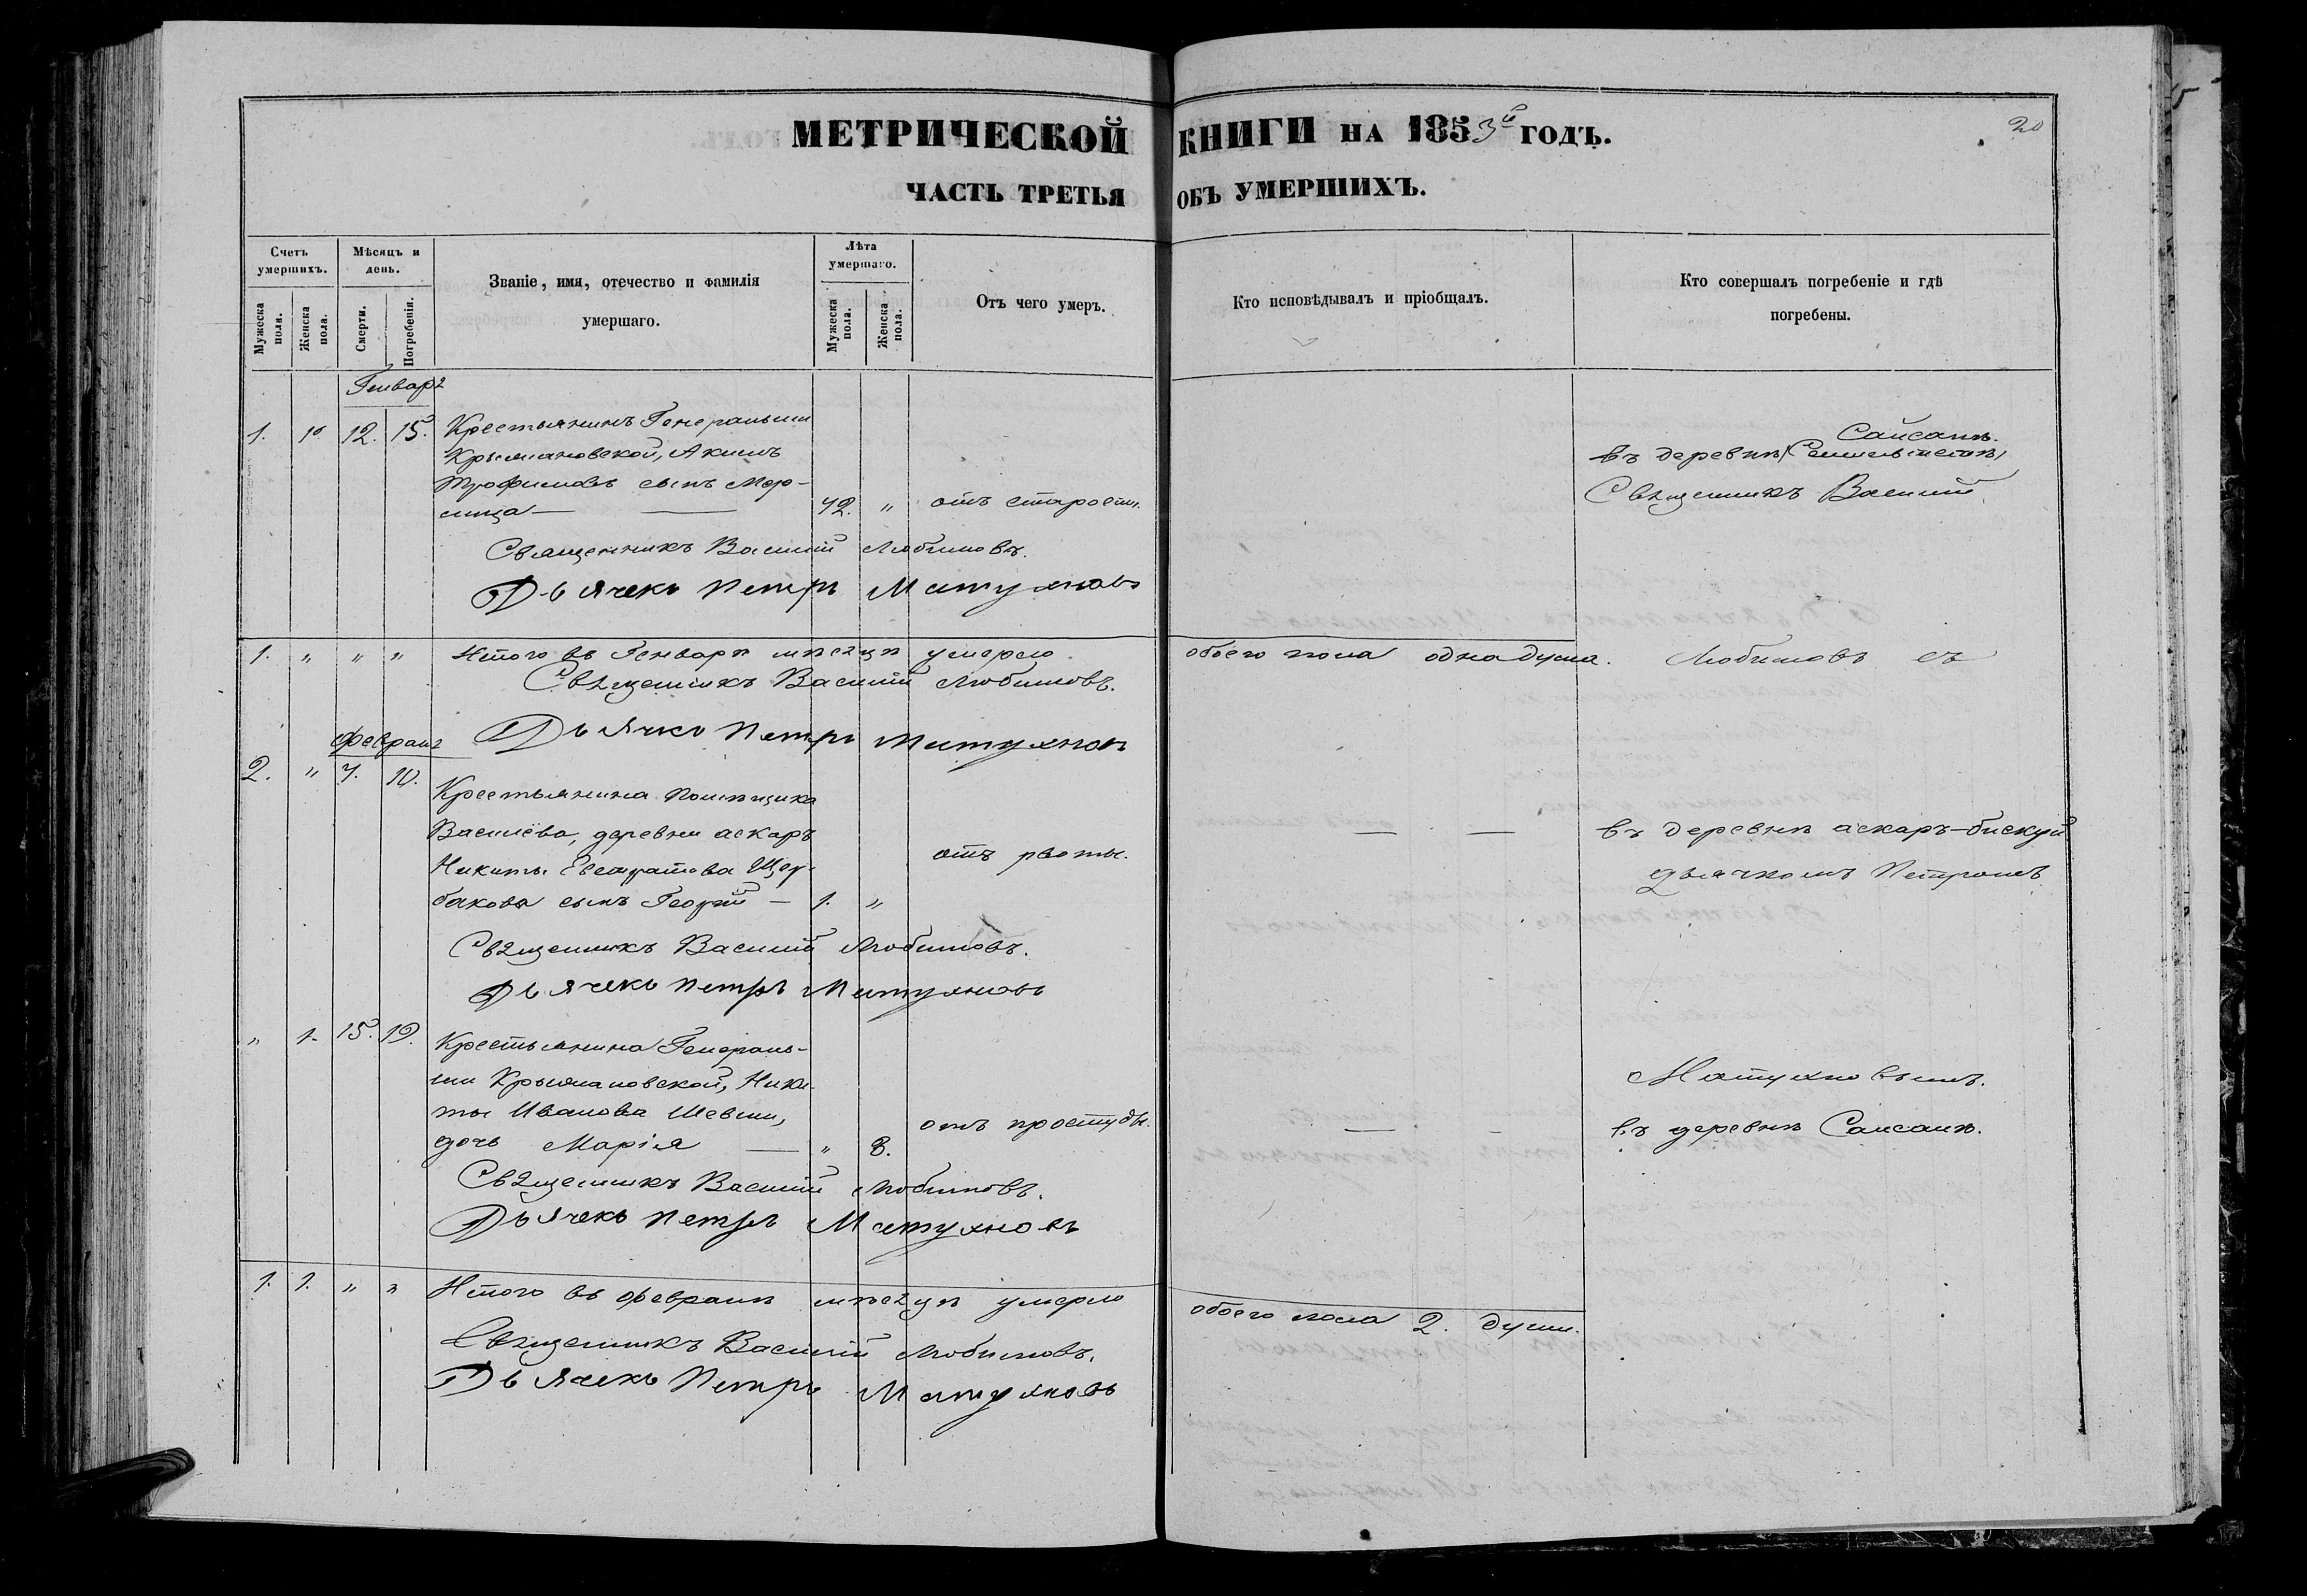 МЕТРИЧЕСКОЙ КНИГИ НА 1853й ГОДЪ.
20
ЧАСТЬ ТРЕТЬЯ ОБЪ УМЕРШИХЪ.
Счетъ умершихъ.
Мужеска пола.
Женска пола.
Мѣсяцъ и день.
Смерти.
Погребенія.
Званіе, имя, отечество и фамилія
умершаго.
Лѣта умершаго.
Мужеска пола.
Женска пола.
Отъ чего умеръ.
Кто исповѣдывалъ и пріобщалъ.
Кто совершалъ погребеніе и гдѣ
погребены.
Генваря
1. 12. 15. Крестьянинъ Генеральши
Крыжановской, Акимъ
Трофимовъ сынъ
72. " отъ старости.
Саисанъ.
въ деревнѣ
Священникъ Василій
Священникъ Василій Любимовъ.
Дьячекъ Петръ Матухновъ
1. " " " Итого въ Генварѣ мѣсяцѣ умерло обоего пола одна душа. Любимовъ съ
Священникъ Василій Любимовъ.
Дьячкъ Петръ Матухновъ
Февраля
2. " 7. 10.
Крестьянина помѣщика
деревни аскаръ
Никиты Евстратова Щер-
бакова сынъ Георгій — 1. "
отъ рвоты.
— —
въ деревнѣ аскаръ-бискуй
дьячкомъ Петромъ
Священникъ Василій Любимовъ.
Дьячекъ Петръ Матухновъ
" 1. 15. 19.
Крестьянина Генераль-
ши Крыжановской, Ники-
ты Иванова
дочь Марія — " 8.
отъ простуды.
— -
Матухновымъ.
въ деревнѣ Саисанъ.
Священникъ Василій Любимовъ.
Дьячекъ Петръ Матухновъ
1. 1. " " Итого въ Февралѣ мѣсяцѣ умерло обоего пола 2. души.
Священникъ Василій Любимовъ.
Дьячекъ Петръ Матухновъ